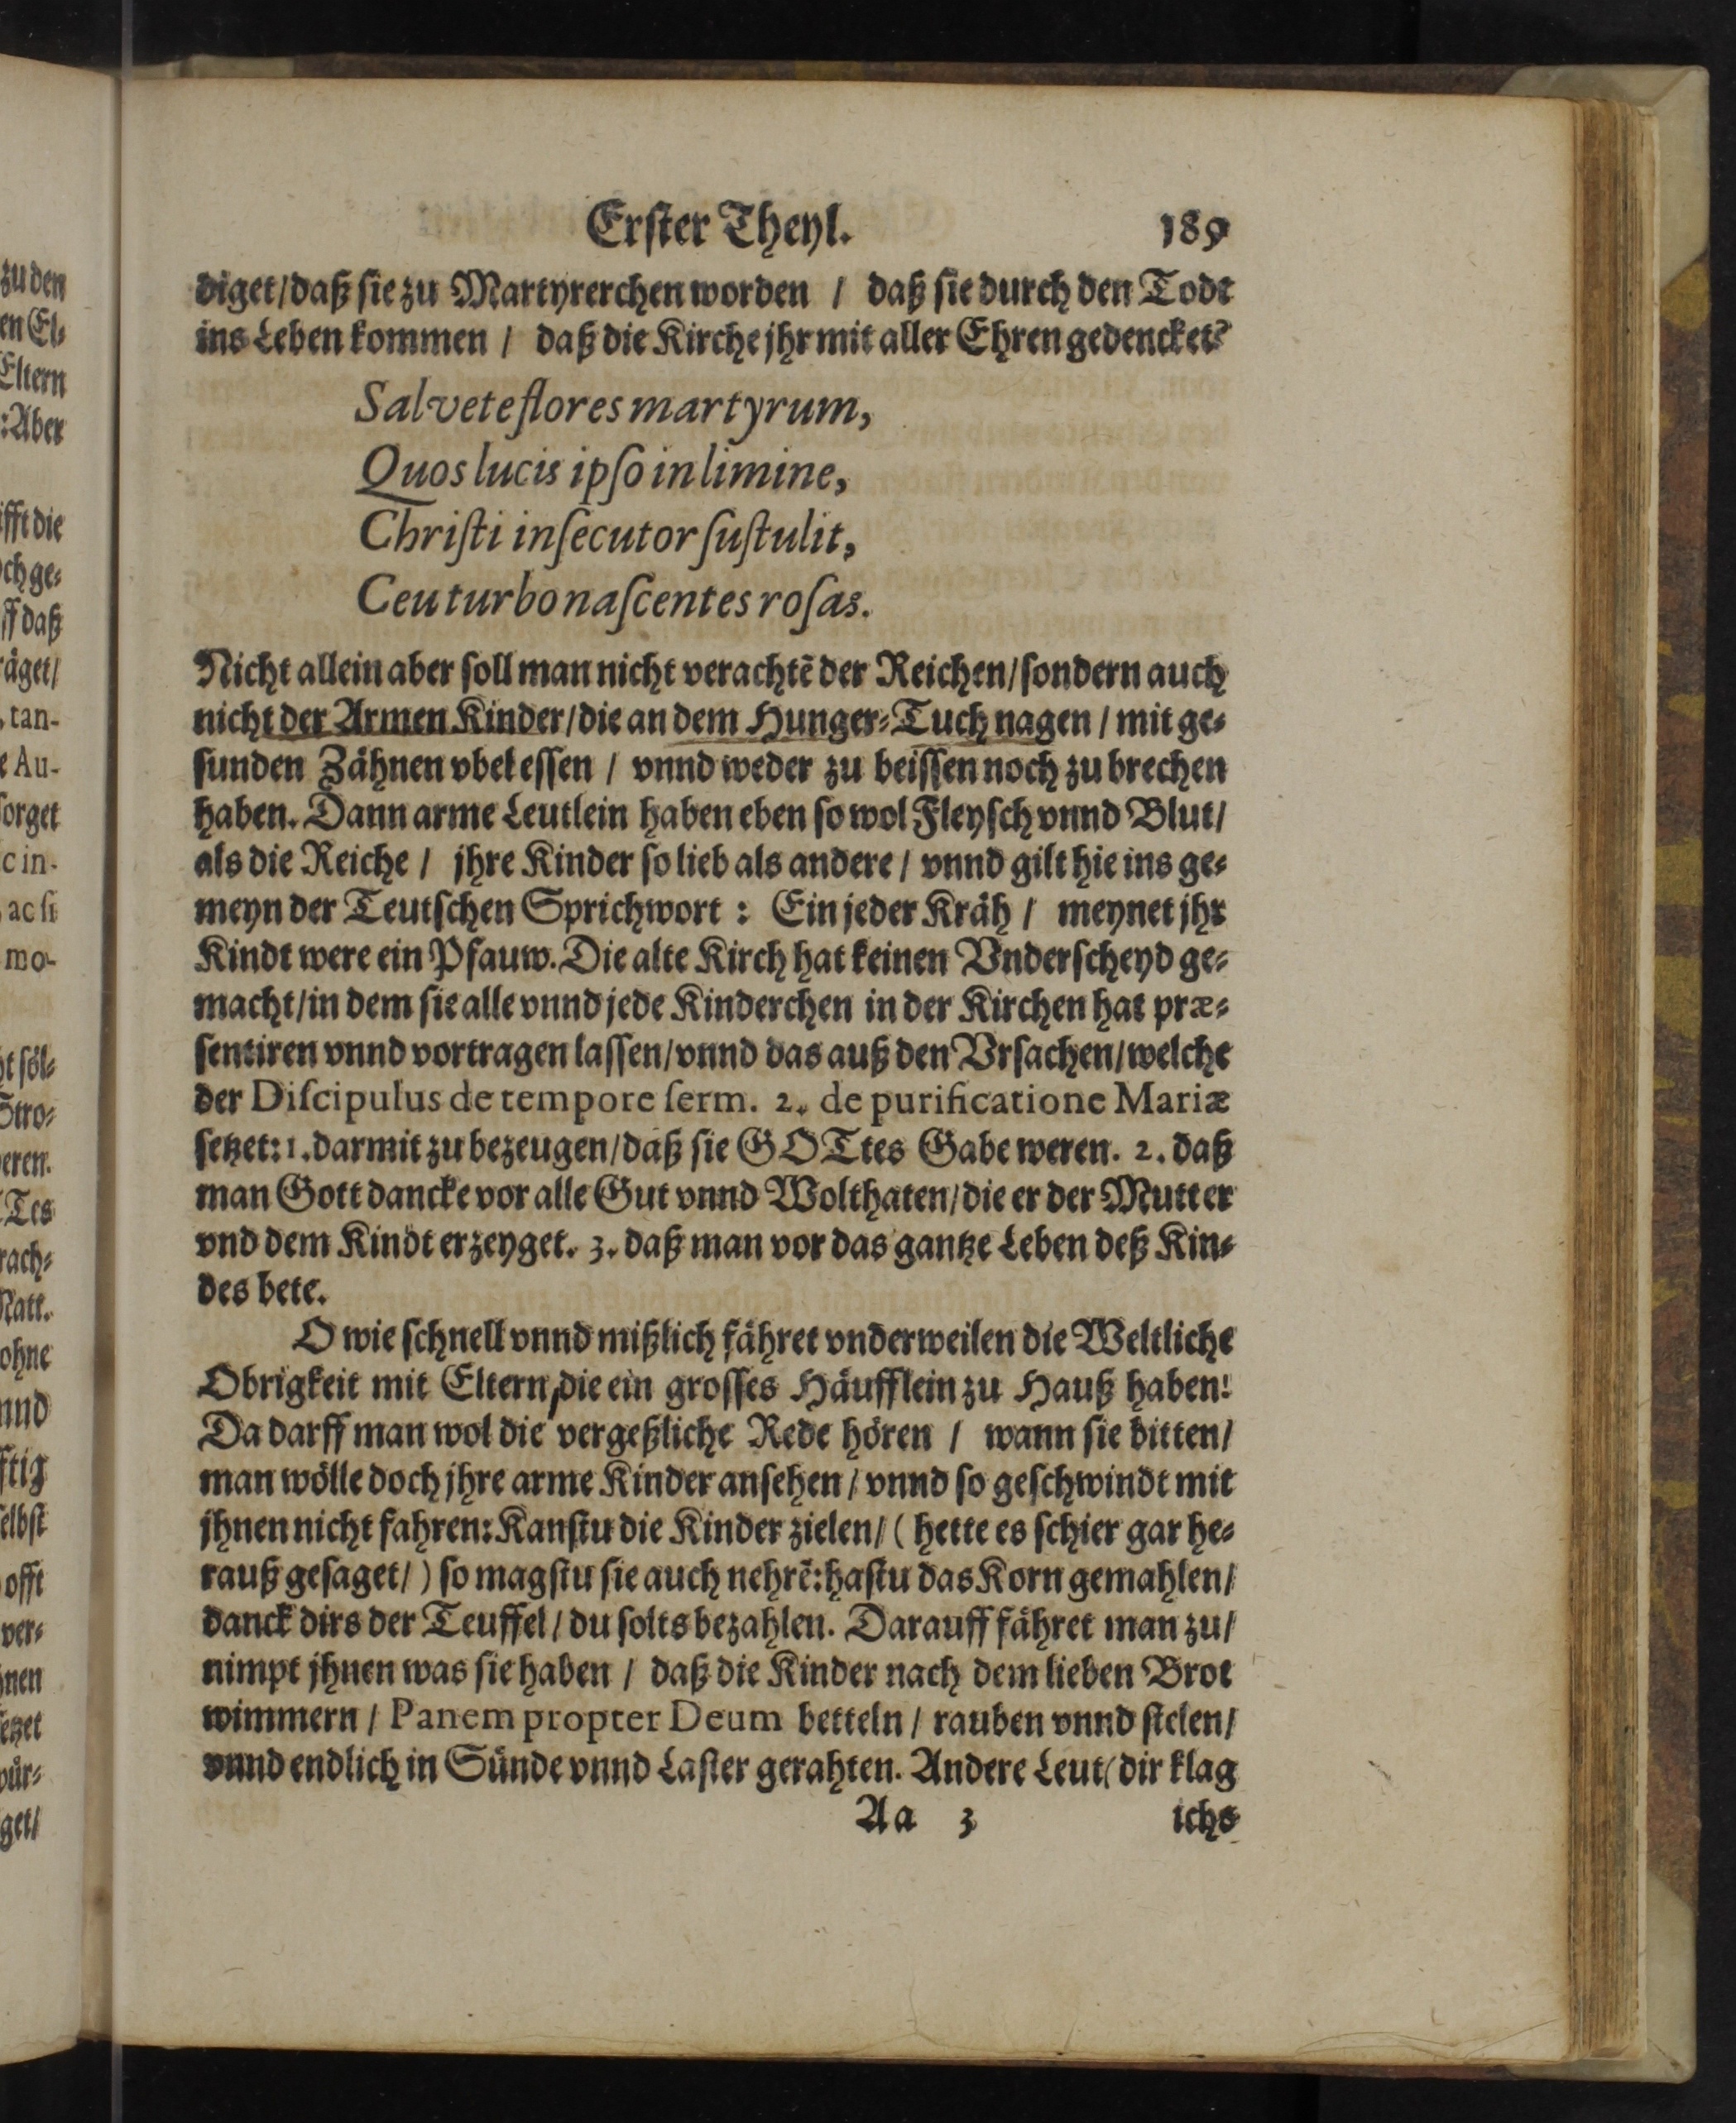 Erſter Theyl. 189
diget/daß ſie zu Martyrerchen worden / daß ſie durch den Todt
ins Leben kommen / daß die Kirche jhr mit aller Ehren gedencket?
Salvete flores martyrum,
Quos lucis ipſo in limine,
Chriſti inſecutor ſuſtulit,
Ceu turbo naſcentes roſas.
Nicht allein aber ſoll man nicht verachtē der Reichen/ſondern auch
nicht der Armen Kinder/die an dem Hunger-Tuch nagen / mit ge-
ſunden Zähnen vbel eſſen / vnnd weder zu beiſſen noch zu brechen
haben. Dann arme Leutlein haben eben ſo wol Fleyſch vnnd Blut/
als die Reiche / jhre Kinder ſo lieb als andere / vnnd gilt hie ins ge-
meyn der Teutſchen Sprichwort : Ein jeder Kräh / meynet jhr
Kindt were ein Pfauw. Die alte Kirch hat keinen Vnderſcheyd ge-
macht/in dem ſie alle vnnd jede Kinderchen in der Kirchen hat præ-
ſentiren vnnd vortragen laſſen/vnnd das auß den Vrſachen/welche
der Diſcipulus de tempore ſerm. 2. de purificatione Mariæ
ſetzet: 1. darmit zu bezeugen/daß ſie GOTtes Gabe weren. 2. daß
man Gott dancke vor alle Gut vnnd Wolthaten/die er der Mutter
vnd dem Kindt erzeyget. 3. daß man vor das gantze Leben deß Kin-
des bete.
O wie ſchnell vnnd mißlich fähret vnderweilen die Weltliche
Obrigkeit mit Eltern/die ein groſſes Häufflein zu Hauß haben!
Da darff man wol die vergeßliche Rede hören / wann ſie bitten/
man wölle doch jhre arme Kinder anſehen / vnnd ſo geſchwindt mit
jhnen nicht fahren: Kanſtu die Kinder zielen/ ( hette es ſchier gar he-
rauß geſaget/) ſo magſtu ſie auch nehrē: haſtu das Korn gemahlen/
danck dirs der Teuffel / du ſolts bezahlen. Darauff fähret man zu/
nimpt jhnen was ſie haben / daß die Kinder nach dem lieben Brot
wimmern / Panem propter Deum betteln / rauben vnnd ſtelen/
vnnd endlich in Sünde vnnd Laſter gerahten. Andere Leut (dir klag
Aa 3 ichs